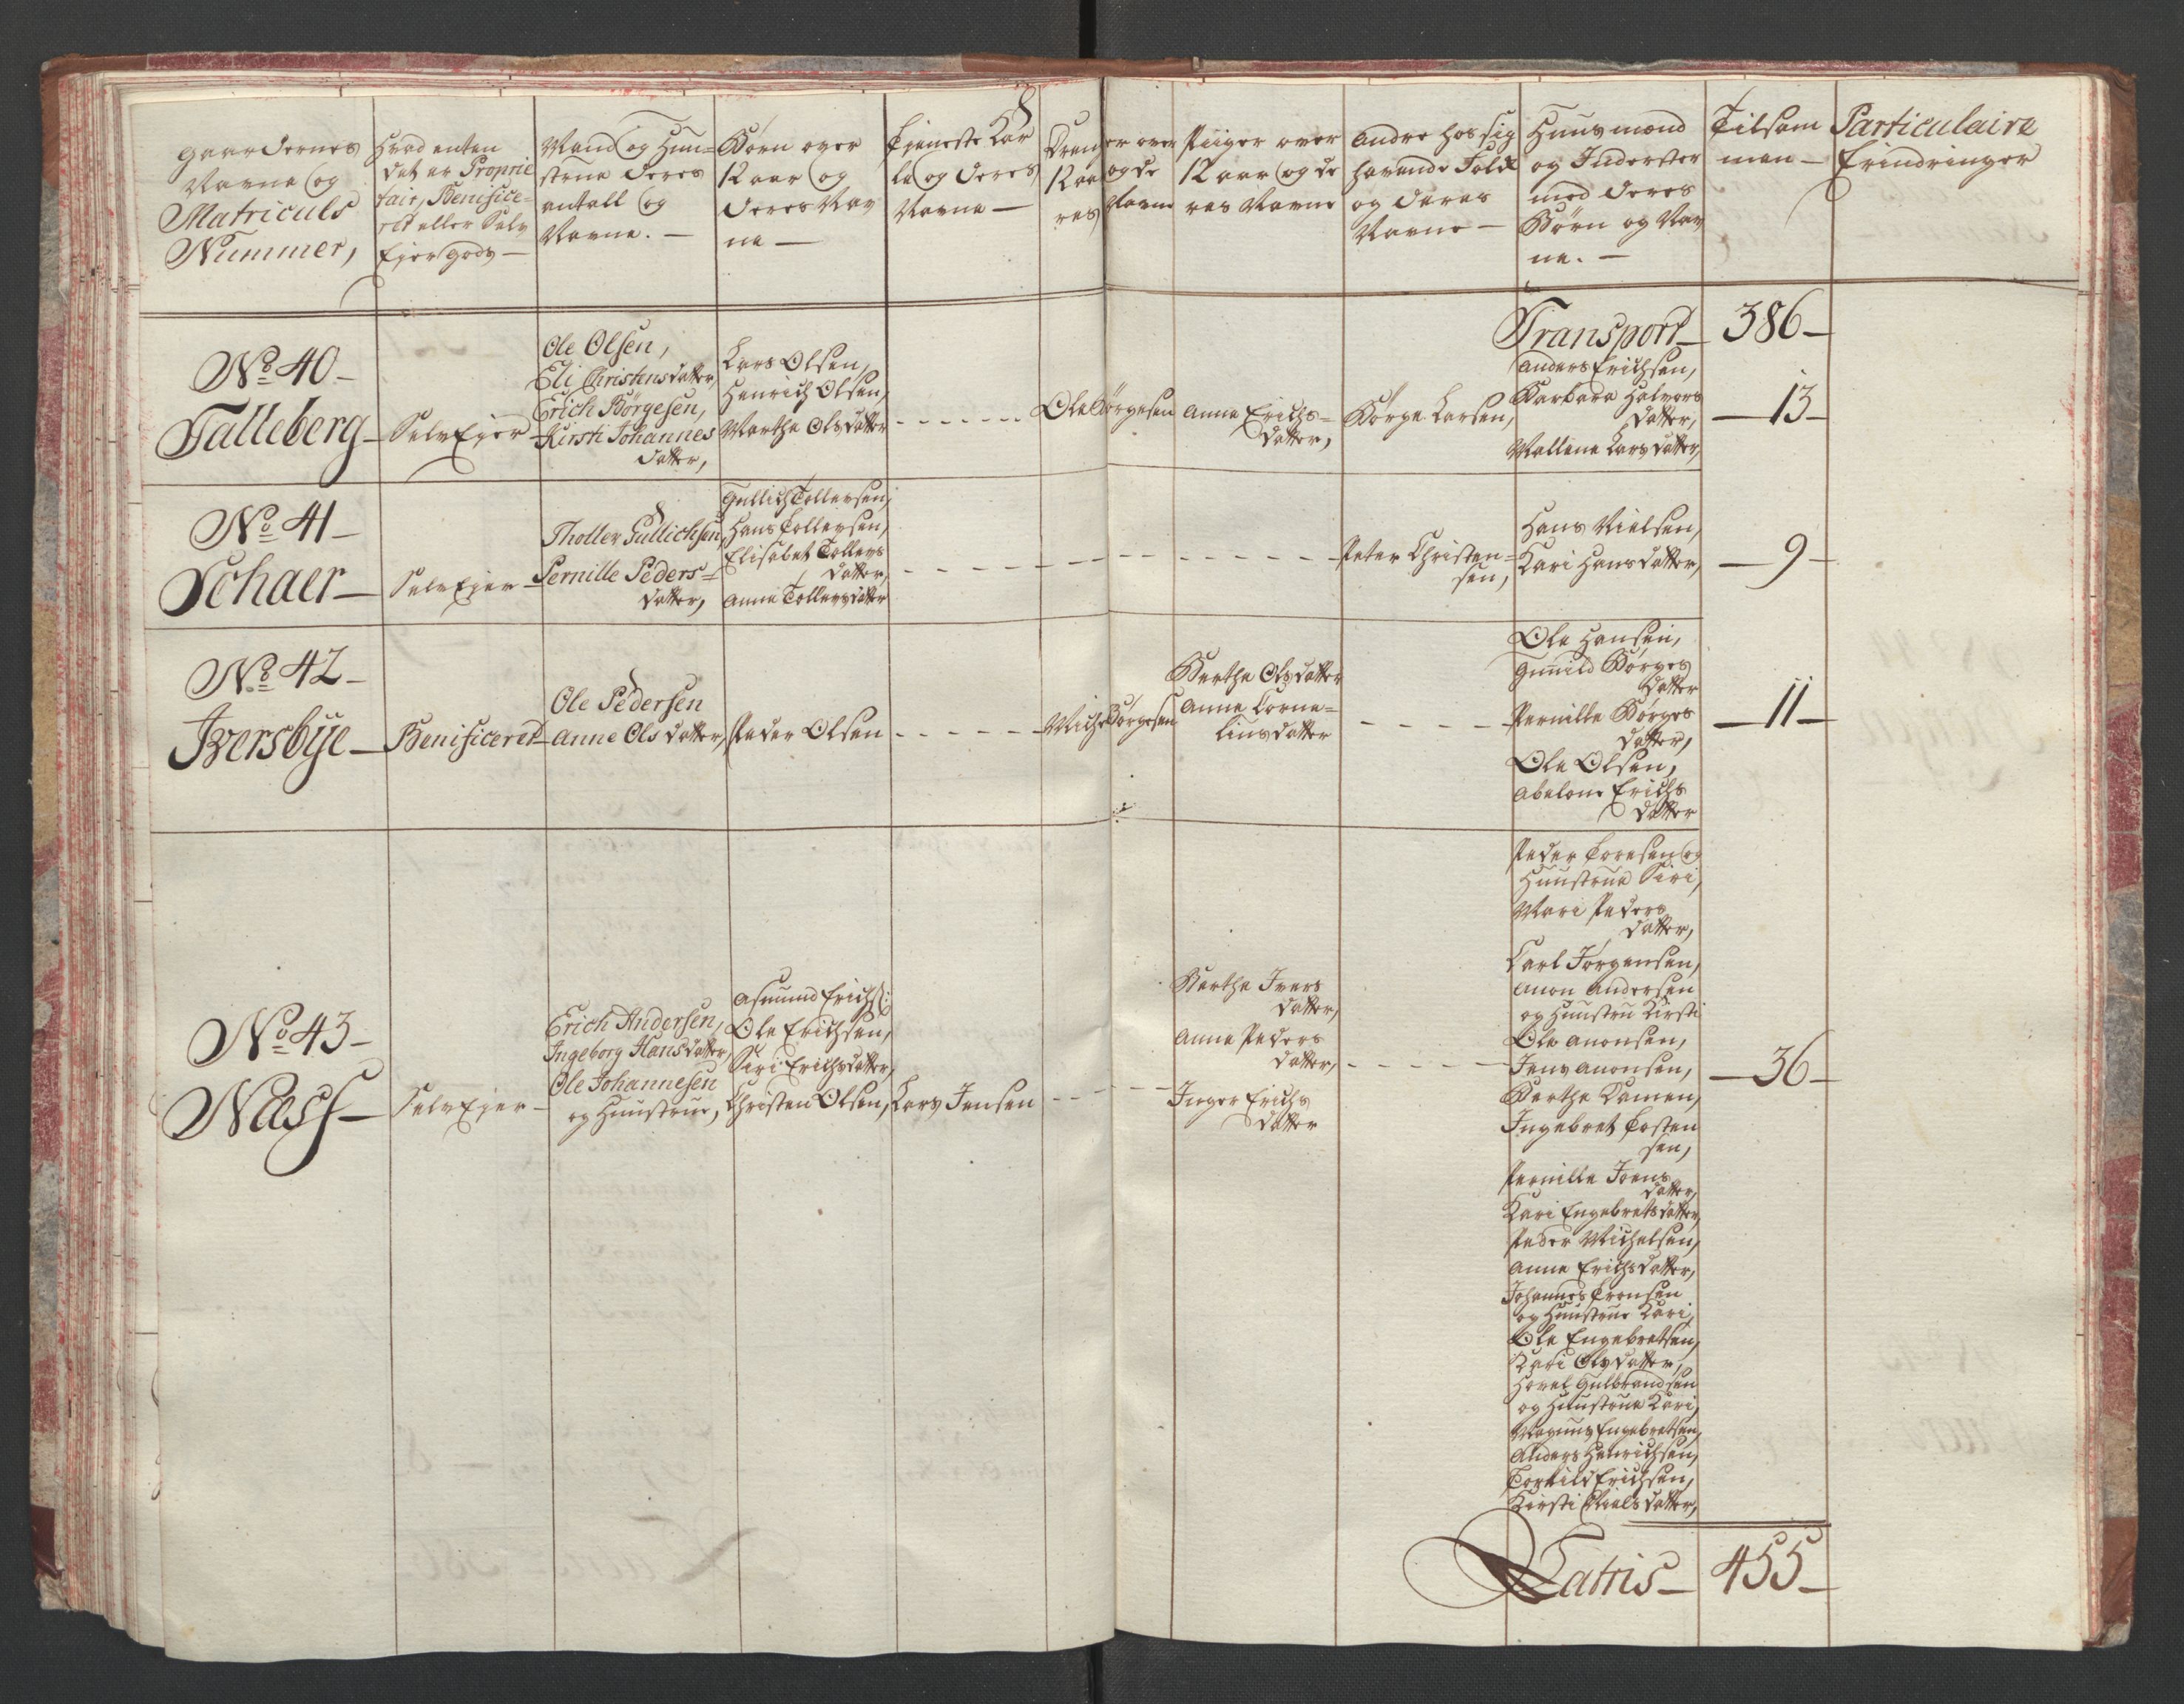 Gaardernes
Navne og
Matriculs
Nummer,
Hvad enten
det er Proprie
tair, Benifice-
ret eller Selv
Ejer gods —
Mand og Hus-
strue deres
antall og
Navne. —
Børn over
12 aar og
deres Nav
ne —
Tjeneste Kar
le og deres
Navne —
Drenger over
12 aar og de
res Navne
Piiger over
12 aar og de
res Navne
Andre hos sig
havende Folk
og deres
Navne —
Huusmænd
og Inderster
med deres
Børn og Nav
ne. —
Tilsam
men —
Particulaire
Erindringer
Transport — 386 —
No 40 —
Falleberg —
SelvEjer —
Ole Olsen,
Eli Christensdatter,
Erich Børgesen,
Kirsti Johannes
datter,
Lars Olsen,
Henrich Olsen,
Marthe Olsdatter
Ole Børgesen
Anne Erichs=
datter,
Børge Larsen,
Anders Erichsen,
Barbara Halvors
datter,
Mallene Larsdatter,
— 13 —
No 41 —
Schaer —
SelvEjer —
Tholler Gullichsen,
Pernille Peders=
datter,
Gullich Tollersen,
Hans Tollersen,
Elisabet Tollers
datter,
Anne Tollersdatter
Peter Christen=
sen,
Hans Nielsen,
Kari Hansdatter,
— 9 —
No 42 —
Iversbÿe —
Benificeret —
Ole Pedersen
Anne Olsdatter,
Peder Olsen
Michel Børgesen
Berthe Olsdatter
Anne Corne=
liusdatter
Ole Hansen,
Gunnild Børges
datter
Pernille Børges
datter,
Ole Olsen,
Abelone Erichs
datter
— 11 —
No 43 —
Næss —
SelvEjer —
Erich Andersen,
Ingeborg Hansdatter,
Ole Johannesen
og Huustrue,
Asmund Erichs:
Ole Erichsen,
Siri Erichsdatter,
Christen Olsen,
Lars Jensen
Berthe Ivers
datter,
Anne Peders
datter,
Inger Erichs
datter
Peder Toresen og
Huustrue Siri,
Mari Peders
datter,
Carl Jørgensen,
Anon Andersen
og Huustru Kirsti
Ole Anonsen,
Jens Anonsen,
Berthe Damen,
Ingebret Tosten
sen,
Pernille Joens
datter,
Kari Engebretsdatter,
Peder Michelsen,
Anne Erichsdatter,
Johannes Tronsen
og Huustrue Kari,
Ole Engebretsen,
Kari Olsdatter,
Havel Gulbrandsen
og Huustrue Kari,
Magnus Engebretsen,
Anders Henrichsen,
Torkild Erichsen,
Kirsti Nielsdatter,
— 36 —
Latris — 455 —